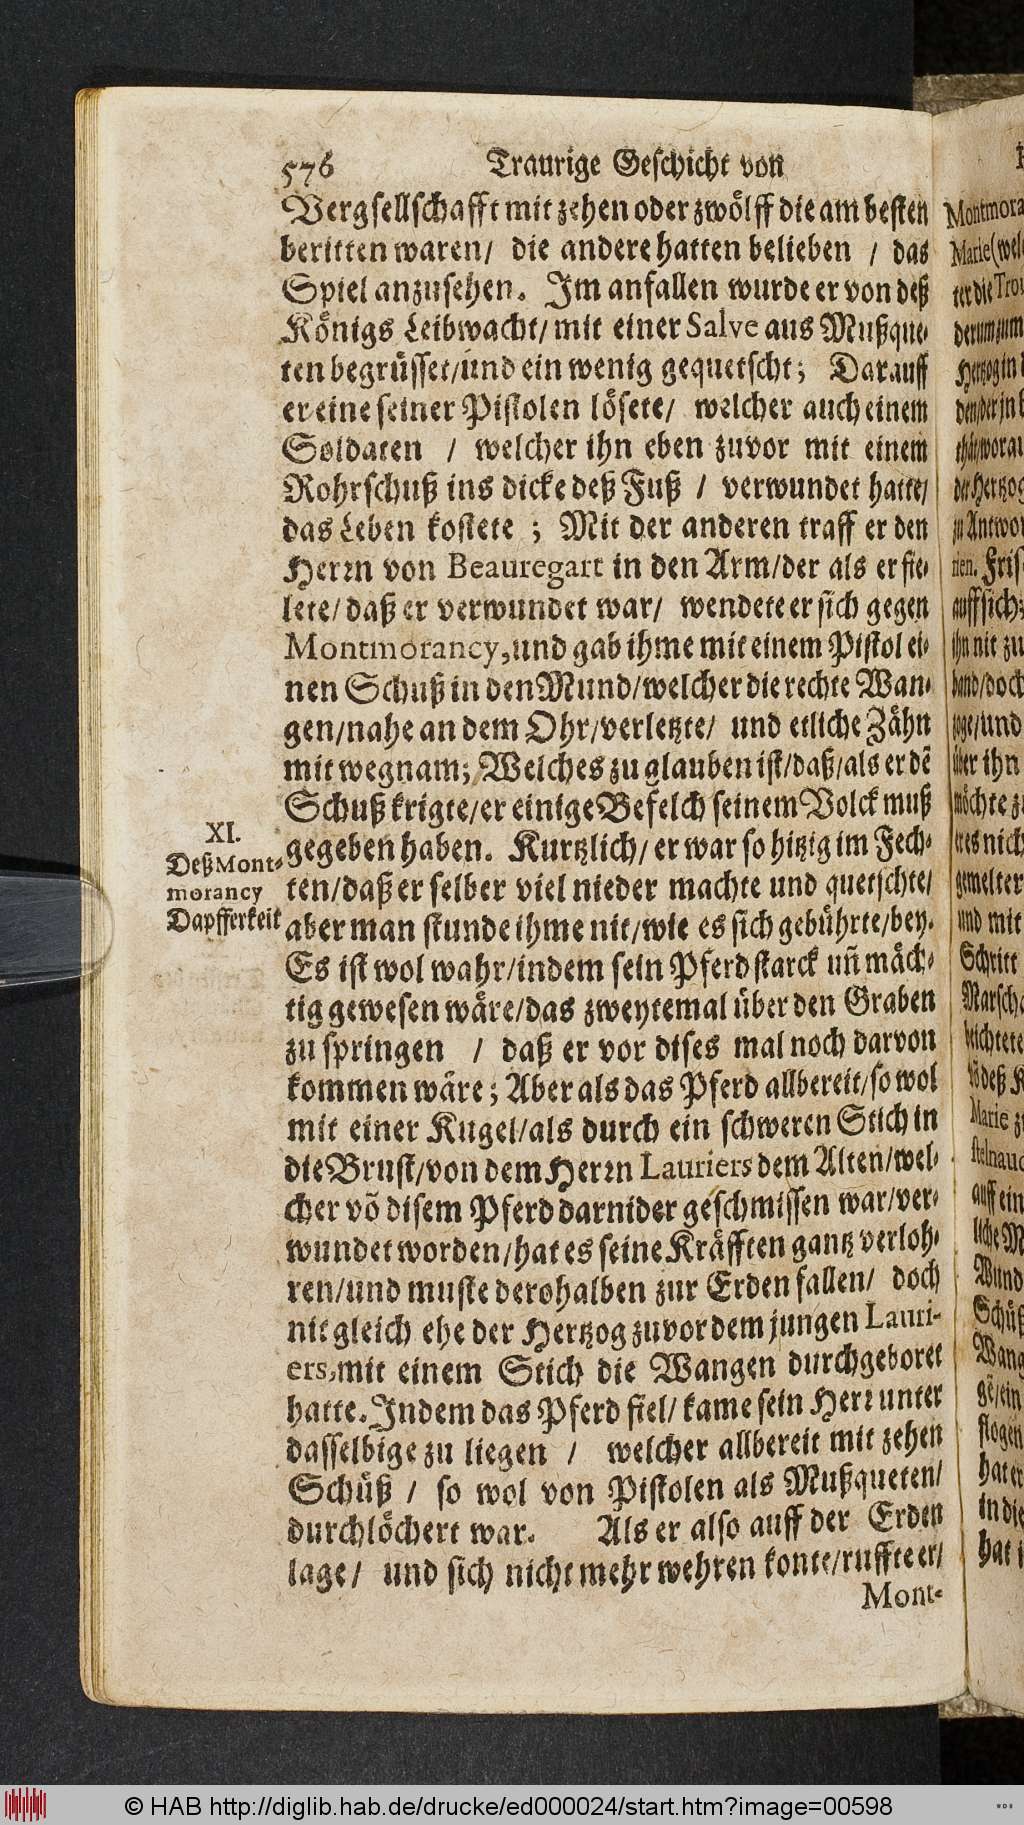 576 Traurige Geschicht von
Vergsellschafft mit zehen oder zwölff die am besten
beritten waren/ die andere hatten belieben / das
Spiel anzusehen. Im anfallen wurde er von deß
Königs Leibwacht/mit einer Salve aus Mußque-
ten begrüsset/und ein wenig gequetscht; Darauff
er eine seiner Pistolen lösete/ welcher auch einem
Soldaten / welcher ihn eben zuvor mit einem
Rohrschuß ins dicke deß Fuß / verwundet hatte/
das Leben kostete ; Mit der anderen traff er den
Herrn von Beauregart in den Arm/der als er fie-
lete/daß er verwundet war/ wendete er sich gegen
Montmorancy, und gab ihme mit einem Pistol ei-
nen Schuß in den Mund/welcher die rechte Wan-
gen/nahe an dem Ohr/verletzte/ und etliche Zähn
mit wegnam; Welches zu glauben ist/daß/als er dẽ
Schuß krigte/er einige Befelch seinem Volck muß
gegeben haben. Kurtzlich/er war so hitzig im Fech-
ten/daß er selber viel nieder machte und quetschte/
aber man stunde ihme nit/wie es sich gebührte/bey.
Es ist wol wahr/indem sein Pferd starck uñ mäch-
tig gewesen wäre/das zweytemal über den Graben
zu springen / daß er vor dises mal noch darvon
kommen wäre; Aber als das Pferd allbereit/so wol
mit einer Kugel/als durch ein schweren Stich in
die Brust/von dem Herrn Lauriers dem Alten/wel-
cher võ disem Pferd darnider geschmissen war/ver-
wundet worden/hat es seine Kräfften gantz verloh-
ren/und muste derohalben zur Erden fallen/ doch
nit gleich ehe der Hertzog zuvor dem jungen Lauri-
ers, mit einem Stich die Wangen durchgeboret
hatte. Indem das Pferd fiel/ kame sein Herr unter
dasselbige zu liegen / welcher allbereit mit zehen
Schüß / so wol von Pistolen als Mußqueten/
durchlöchert war. Als er also auff der Erden
lage/ und sich nicht mehr wehren konte/ruffte er/
Mont-
XI.
Deß Mont-
morancy
Dapfferkeit
Marie (wel
Hertzog in
zu Antwor
auff sich;
ihn nit zu
über ihn
und mit
Schritt
Marie zu
auff ein
hat er
in die
© HAB http://diglib.hab.de/drucke/ed000024/start.htm?image=00598